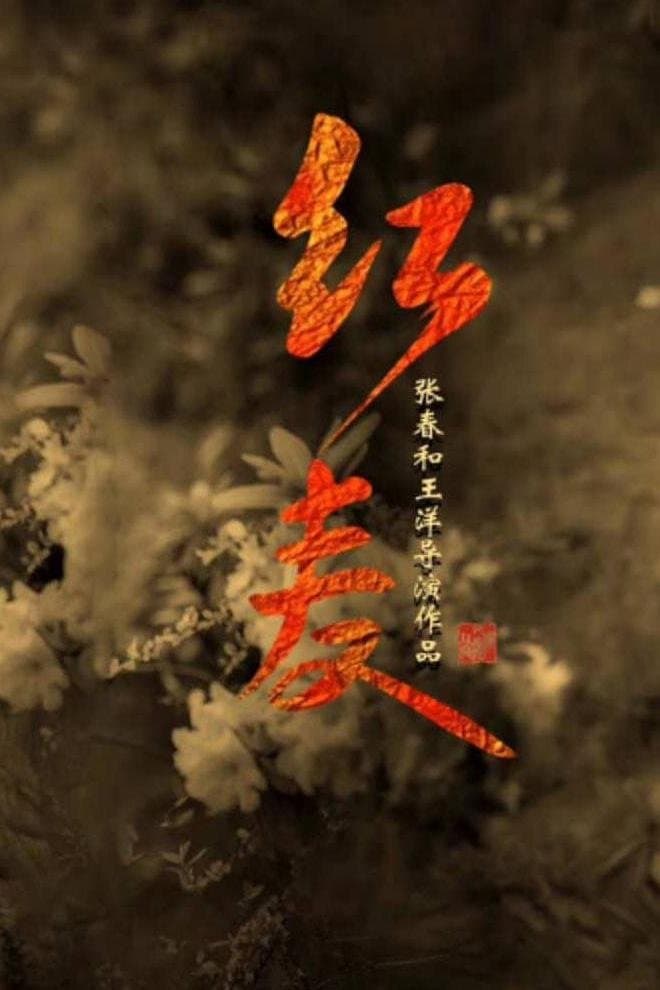 红麦
张春和王洋导演作品